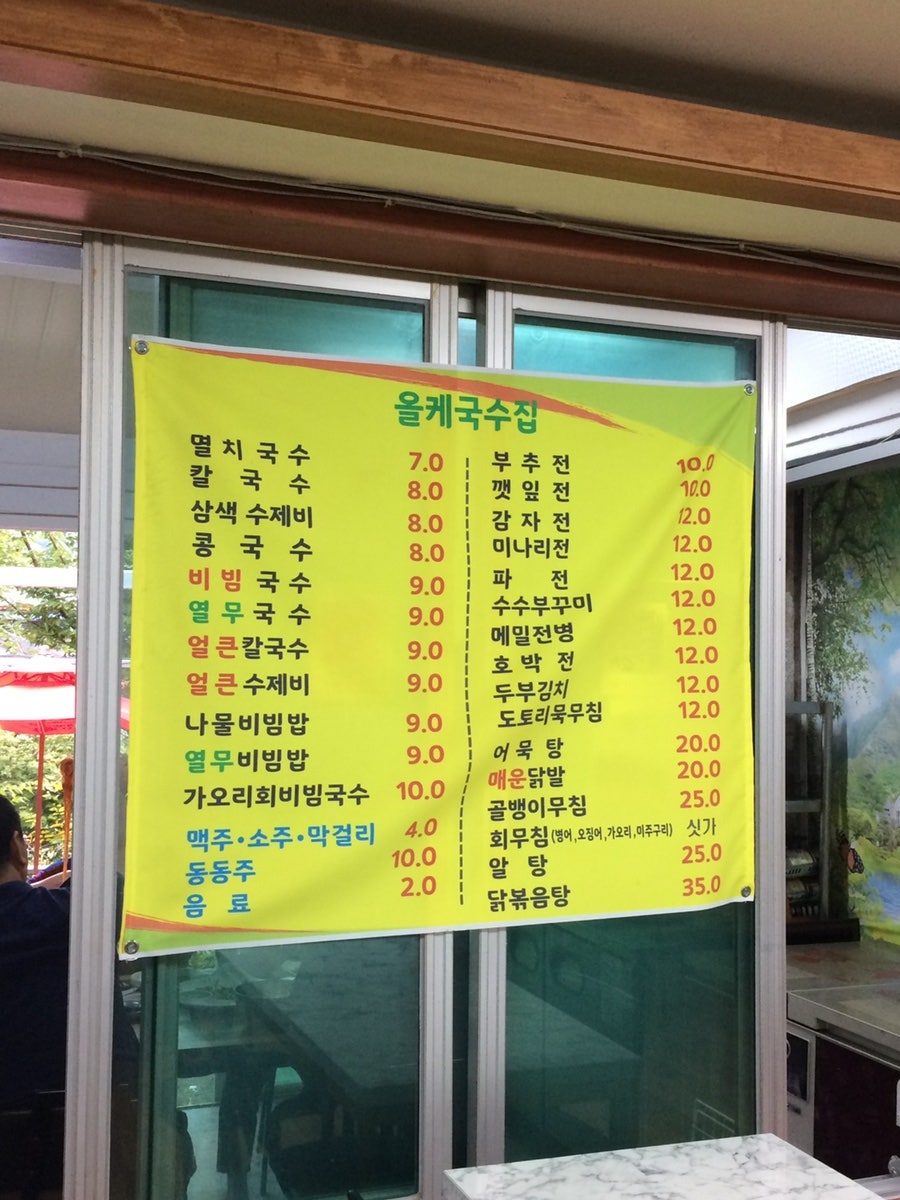 올케국수집
멸치 국수 7.0
칼 국 수 8.0
삼색 수제비 8.0
콩 국 수 8.0
비빔 국수 9.0
열무 국수 9.0
얼큰칼국수 9.0
얼큰수제비 9.0
나물비빔밥 9.0
열무비빔밥 9.0
가오리회비빔국수 10.0
맥주·소주·막걸리 4.0
동동주 10.0
음 료 2.0
부 추 전 10.0
깻 잎 전 10.0
감 자 전 12.0
미나리전 12.0
파 전 12.0
수수부꾸미 12.0
메밀전병 12.0
호 박 전 12.0
두부김치 12.0
도토리묵무침 12.0
어 묵 탕 20.0
매운닭발 20.0
골뱅이무침 25.0
회무침(병어,오징어,가오리,미주구리) 싯가
알 탕 25.0
닭볶음탕 35.0